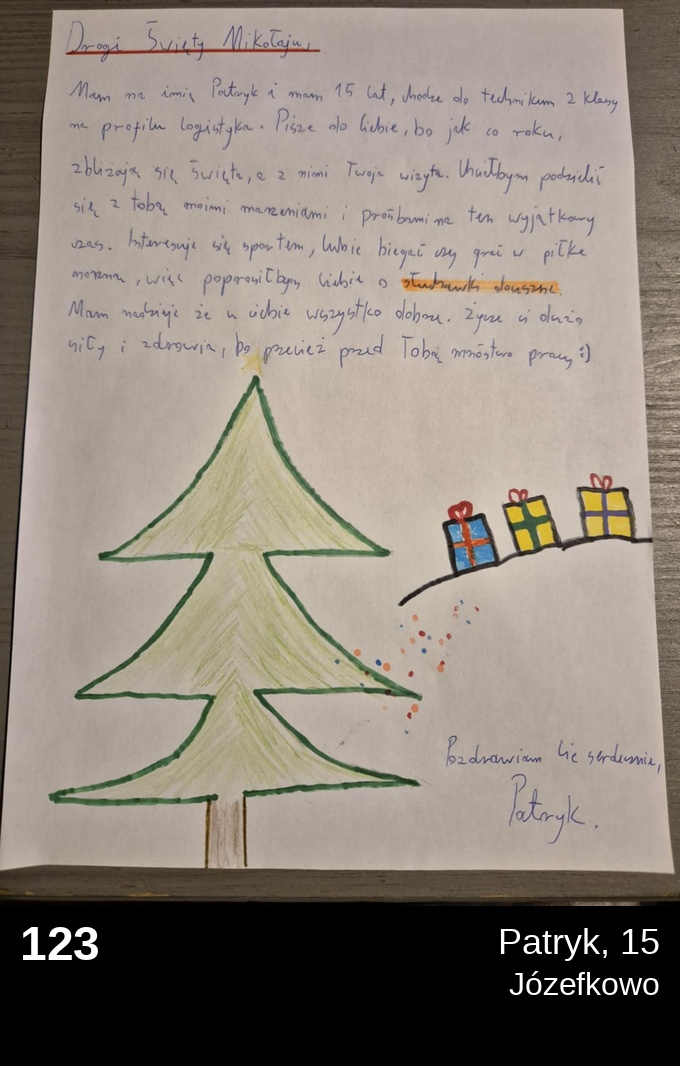 Drogi Święty Mikołaju,
Mam na imię Patryk i mam 15 lat, chodzę do technikum 2 klasy
na profilu logistyka. Piszę do Ciebie, bo jak co roku,
zbliżają się Święta, a z nimi Twoja wizyta. Chciałbym podzielić
się z tobą moimi marzeniami i prośbami na ten wyjątkowy
czas. Interesuje się sportem, lubię biegać czy grać w piłkę
nożną, więc poprosiłbym Ciebie o słuchawki douszne.
Mam nadzieję że u ciebie wszystko dobrze. Życzę ci dużo
siły i zdrowia, bo przecież przed Tobą mnóstwo pracy :)
Pozdrawiam Cię serdecznie,
Patryk.
123
Patryk, 15
Józefkowo